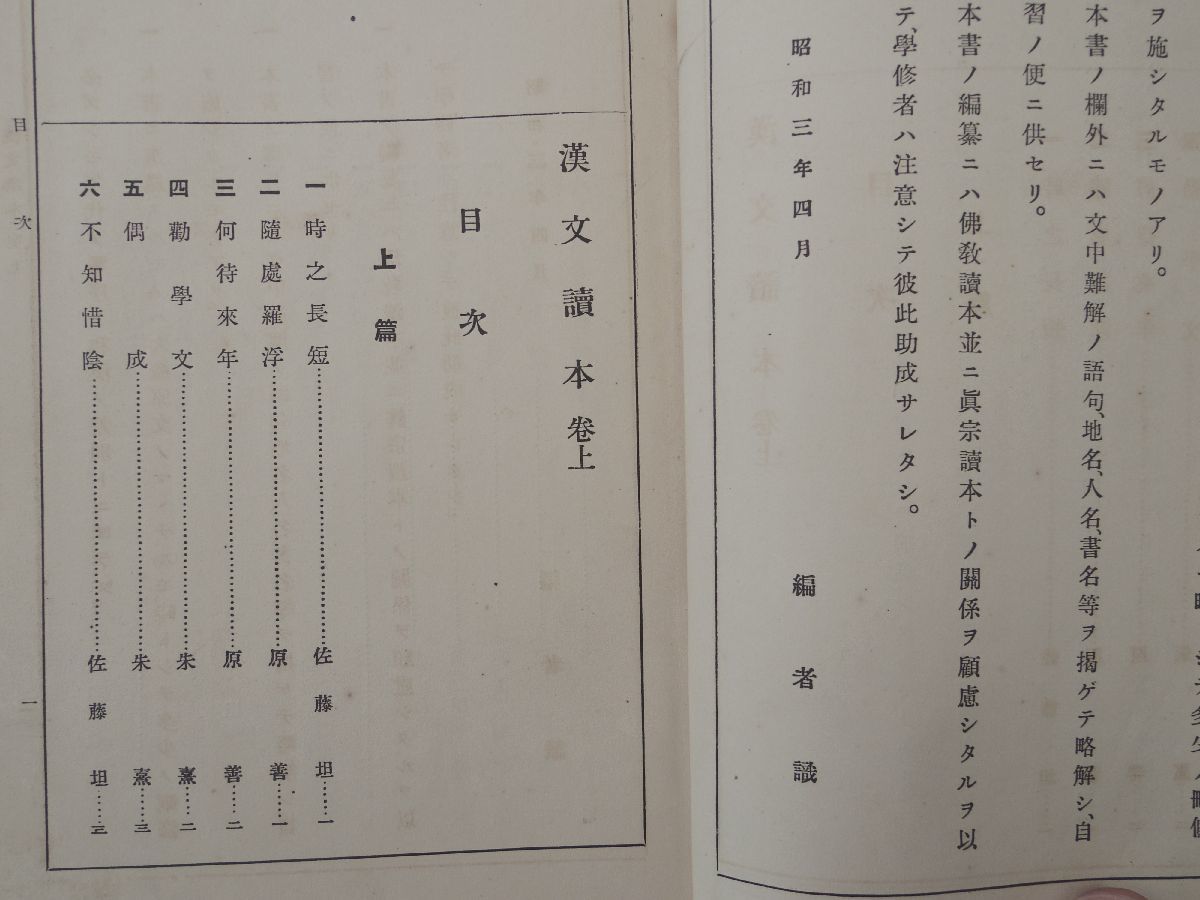 ヲ施シタルモノアリ。
本書ノ欄外ニハ文中難解ノ語句、地名、人名、書名等ヲ揭ゲテ略解シ、自
習ノ便ニ供セリ。
本書ノ編纂ニハ佛敎讀本並ニ眞宗讀本トノ關係ヲ顧慮シタルヲ以
テ、學修者ハ注意シテ彼此助成サレタシ。
昭和三年四月 編者識
漢文讀本卷上
目次
上篇
一 時之長短……佐藤坦……一
二 隨處羅浮……原善……一
三 何待來年……原善……二
四 勸學文……朱熹……二
五 偶成……朱熹……三
六 不知惜陰……佐藤坦……三
目次 一